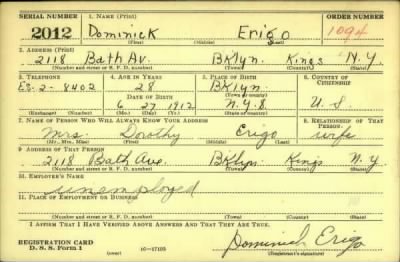 SERIAL NUMBER 1. NAME (Print) ORDER NUMBER
2012 Dominick Erigo 1094
(First) (Middle) (Last)
2. ADDRESS (Print)
2118 Bath Av. BKlyn. Kings N.Y.
(Number and street or R. F. D. number) (Town) (County) (State)
3. TELEPHONE 4. AGE IN YEARS 5. PLACE OF BIRTH 6. COUNTRY OF CITIZENSHIP
Es-2-8402 28 BKlyn.
DATE OF BIRTH (Town or county)
6 27 1912 N.Y.S. U.S.
(Exchange) (Number) (Mo.) (Day) (Yr.) (State or country)
7. NAME OF PERSON WHO WILL ALWAYS KNOW YOUR ADDRESS 8. RELATIONSHIP OF THAT PERSON
Mrs. Dorothy Erigo wife
(Mr., Mrs., Miss) (First) (Middle) (Last)
9. ADDRESS OF THAT PERSON
2118 Bath Ave. BKlyn. Kings N.Y.
(Number and street or R. F. D. number) (Town) (County) (State)
10. EMPLOYER'S NAME
unemployed
11. PLACE OF EMPLOYMENT OR BUSINESS
(Number and street or R. F. D. number) (Town) (County) (State)
I AFFIRM THAT I HAVE VERIFIED ABOVE ANSWERS AND THAT THEY ARE TRUE.
REGISTRATION CARD
D. S. S. Form 1 (over) 16—17105 Dominick Erigo
(Registrant's signature)